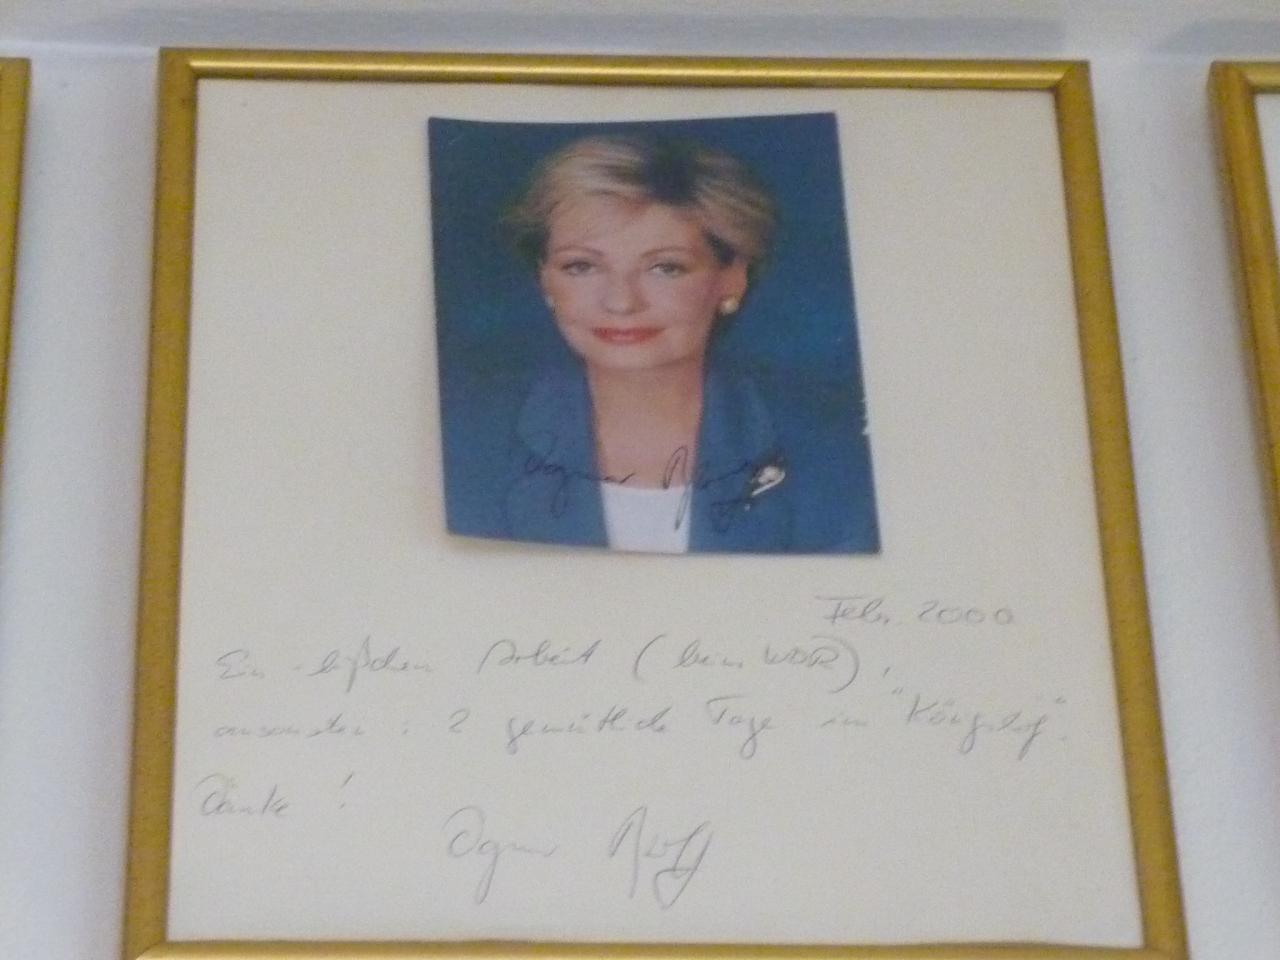 Dagmar Berghoff
Febr. 2000
Ein bißchen Arbeit (beim WDR),
ansonsten: 2 gemütliche Tage im "Königshof".
Danke!
Dagmar Berghoff